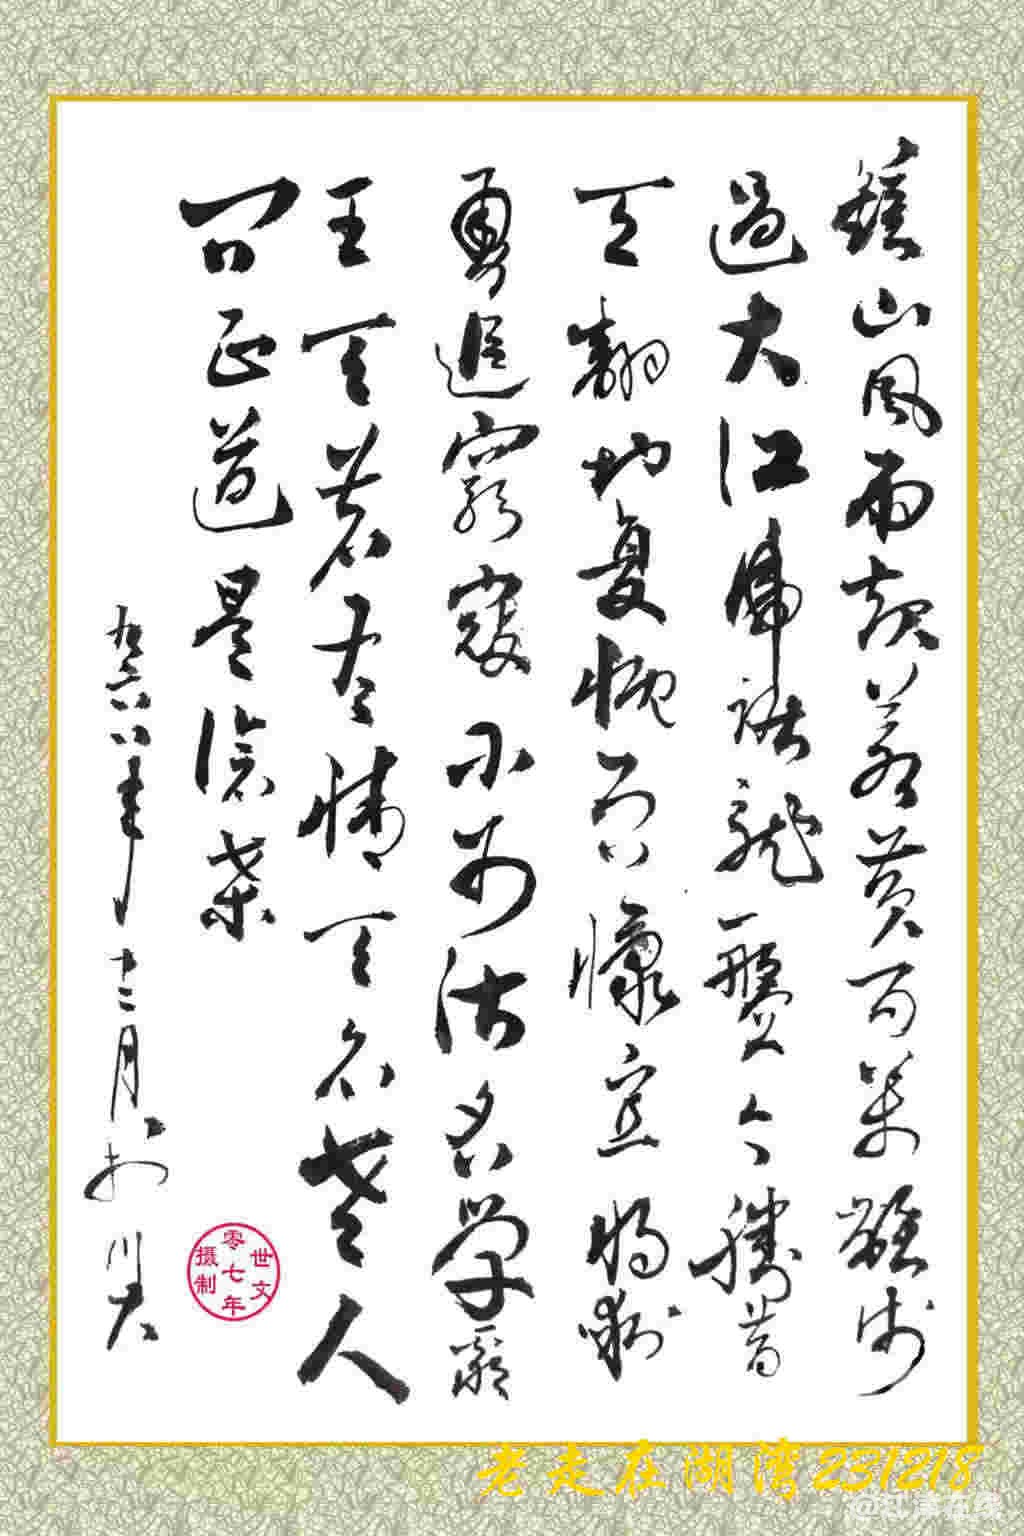 鍾山風雨起蒼黄百萬雄師
過大江虎踞龍盤今勝昔
天翻地覆慨而慷宜將剩
勇追窮寇不可沽名学霸
王天若有情天亦老人
间正道是滄桑
九六八年十二月於川大
世文
零七年
摄制
老走在湖湾231218